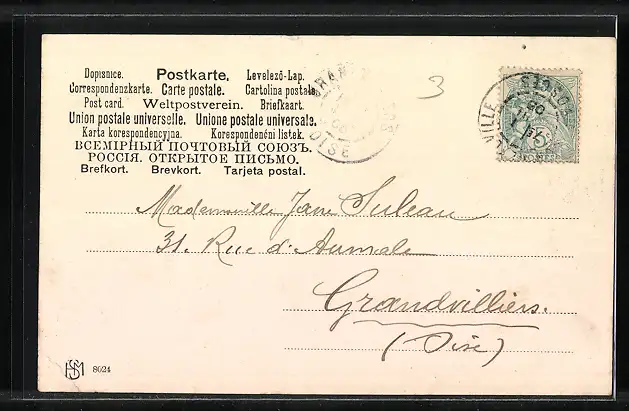 Dopisnice. Postkarte. Levelező-Lap.
Correspondenzkarte. Carte postale. Cartolina postale.
Post card. Weltpostverein. Briefkaart.
Union postale universelle. Unione postale universale.
Karta korespondencyjna. Korespondenční lístek.
ВСЕМІРНЫЙ ПОЧТОВЫЙ СОЮЗЪ.
РОССІЯ. ОТКРЫТОЕ ПИСЬМО.
Brefkort. Brevkort. Tarjeta postal.
3
OISE
VILLE
05
5
Mademoiselle Jane Suleau
31. Rue d'Aumale
Grandvilliers.
(Oise)
HSM 8024